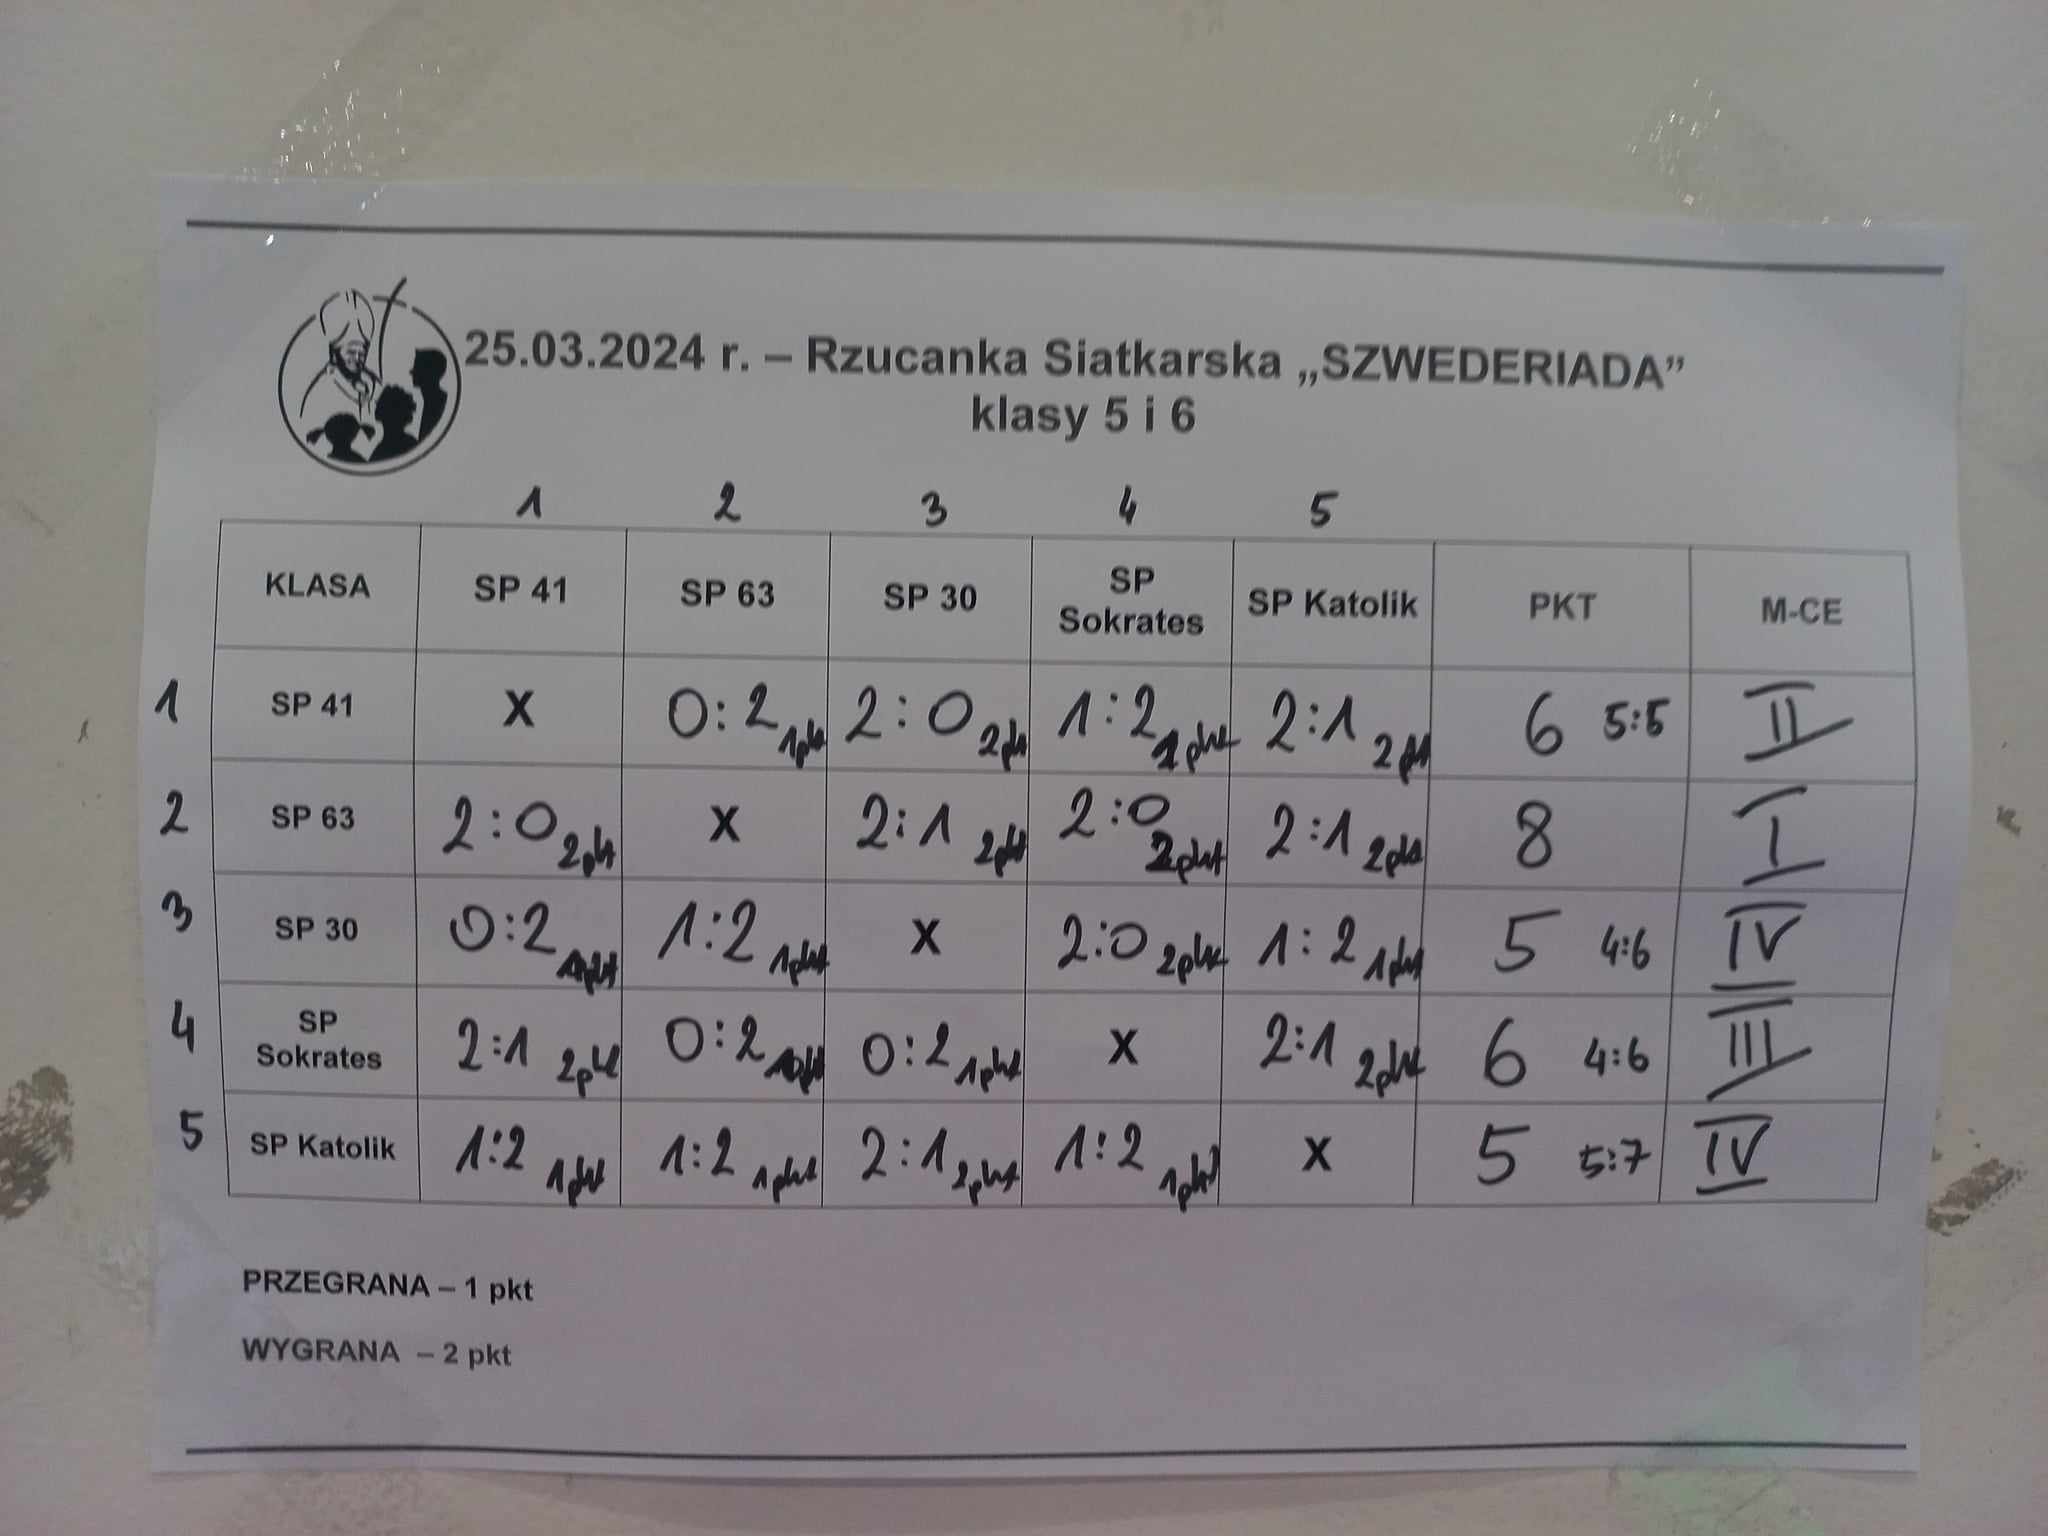 25.03.2024 r. – Rzucanka Siatkarska „SZWEDERIADA”
klasy 5 i 6
1 2 3 4 5
KLASA SP 41 SP 63 SP 30 SP Sokrates SP Katolik PKT M-CE
1 SP 41 X 0:2 1pkt 2:0 2pkt 1:2 1pkt 2:1 2pkt 6 5:5 II
2 SP 63 2:0 2pkt X 2:1 2pkt 2:0 2pkt 2:1 2pkt 8 I
3 SP 30 0:2 1pkt 1:2 1pkt X 2:0 2pkt 1:2 1pkt 5 4:6 IV
4 SP Sokrates 2:1 2pkt 0:2 1pkt 0:2 1pkt X 2:1 2pkt 6 4:6 III
5 SP Katolik 1:2 1pkt 1:2 1pkt 2:1 2pkt 1:2 1pkt X 5 5:7 IV
PRZEGRANA – 1 pkt
WYGRANA – 2 pkt